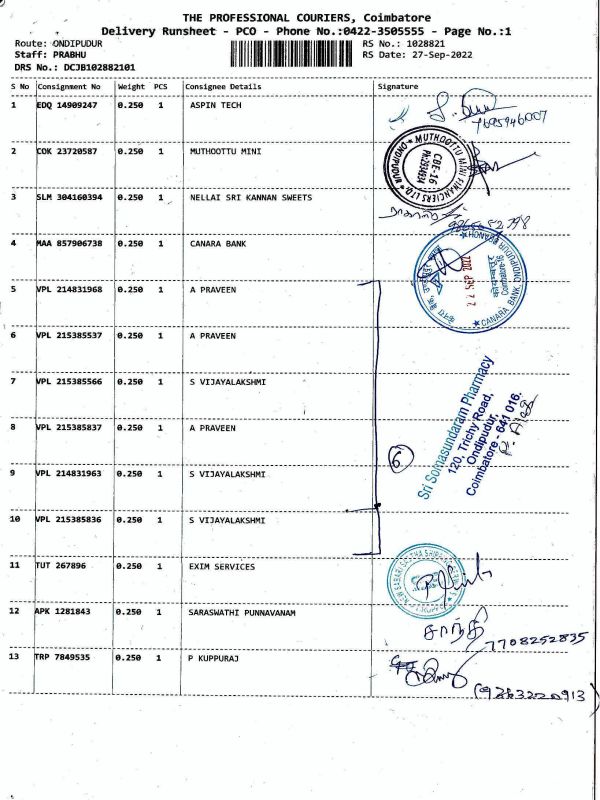 THE PROFESSIONAL COURIERS, Coimbatore
Delivery Runsheet - PCO - Phone No.:0422-3505555 - Page No.:1
Route: ONDIPUDUR RS No.: 1028821
Staff: PRABHU RS Date: 27-Sep-2022
DRS No.: DCJB102882101
S No Consignment No Weight PCS Consignee Details Signature
1 EDQ 14909247 0.250 1 ASPIN TECH
7695946007
2 COK 23720587 0.250 1 MUTHOOTTU MINI
MUTHOOTTU MINI FINANCIERS LTD. ONDIPUDUR
CBE-16
3 SLM 304160394 0.250 1 NELLAI SRI KANNAN SWEETS
4 MAA 857906738 0.250 1 CANARA BANK
CANARA BANK, ONDIPUDUR BRANCH
SEP 2022
5 VPL 214831968 0.250 1 A PRAVEEN
6 VPL 215385537 0.250 1 A PRAVEEN
7 VPL 215385566 0.250 1 S VIJAYALAKSHMI
8 VPL 215385837 0.250 1 A PRAVEEN
Sri Somasundaram Pharmacy
120, Trichy Road,
Ondipudur,
Coimbatore - 641 016.
6
9 VPL 214831963 0.250 1 S VIJAYALAKSHMI
10 VPL 215385836 0.250 1 S VIJAYALAKSHMI
11 TUT 267896 0.250 1 EXIM SERVICES
12 APK 1281843 0.250 1 SARASWATHI PUNNAVANAM
சாந்தி
7708252835
13 TRP 7849535 0.250 1 P KUPPURAJ
(9263220913)